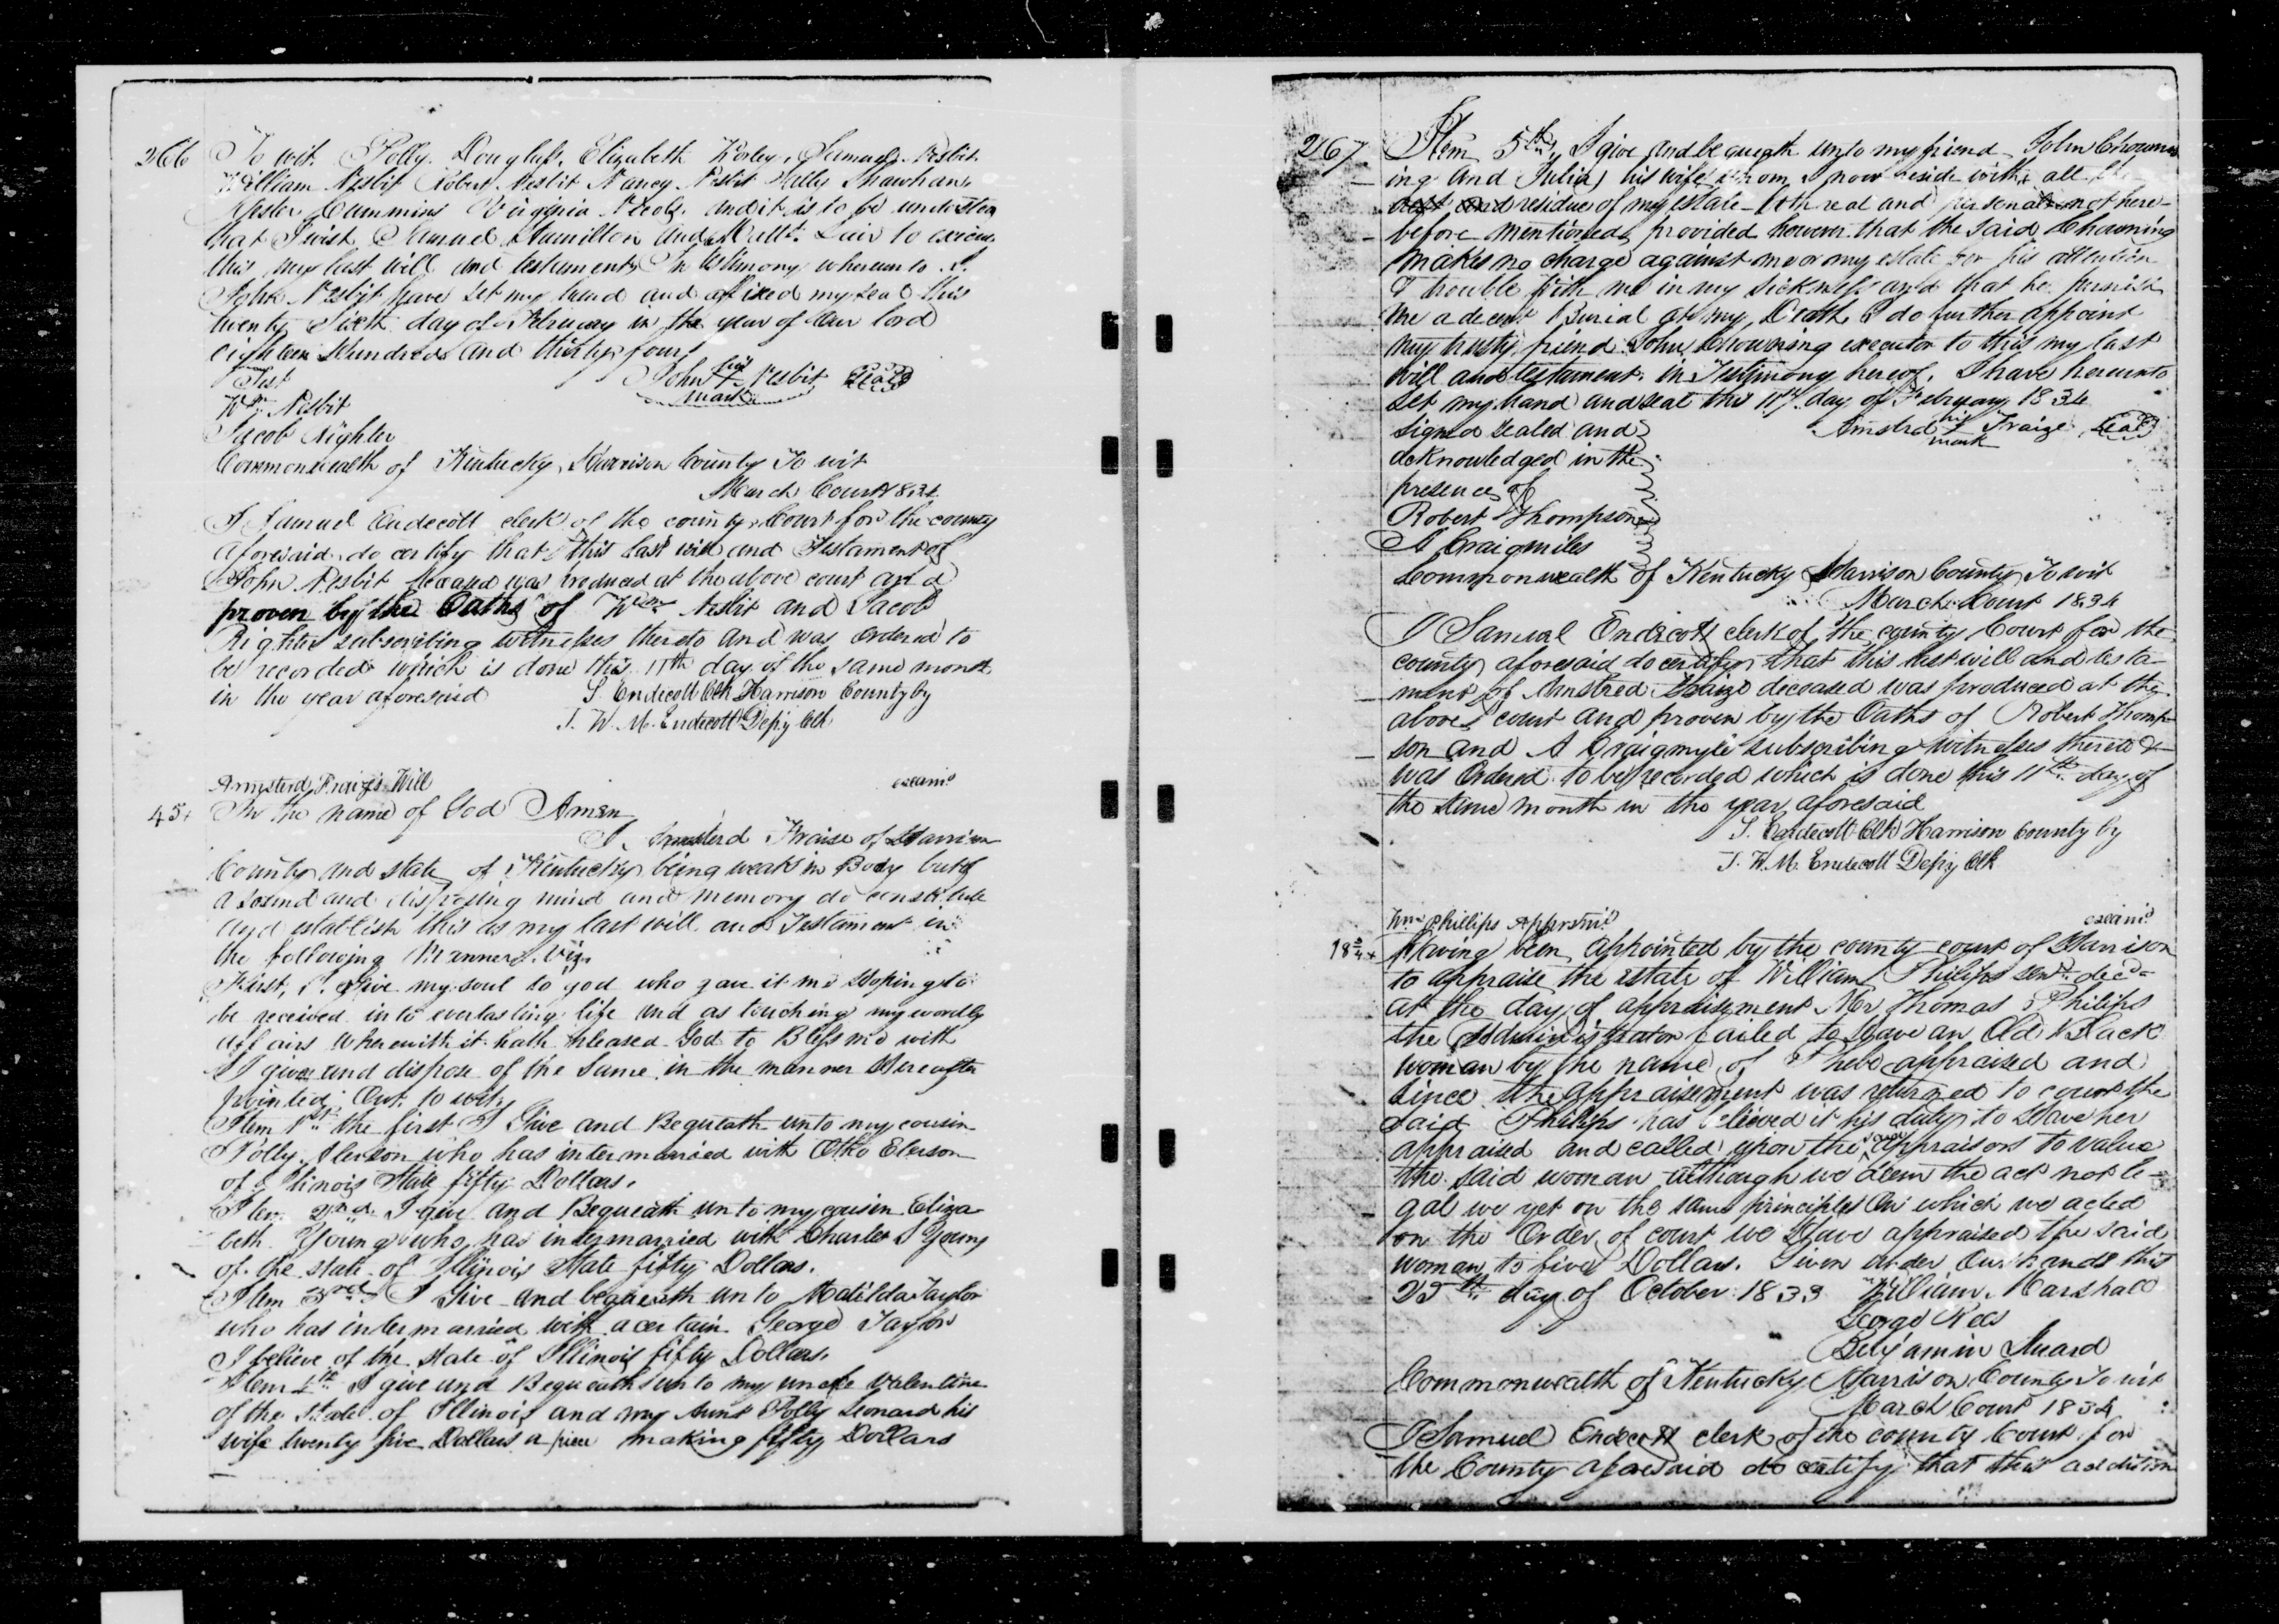 266
To wit. Polly Douglass, Elizabeth Kirley, Samuel Nesbit
William Nesbit Robert Nesbit Nancy Nesbit Sally Shawhan,
Hester Cummins Virginia and it is to be understood
that I wish Samuel Hamilton and Lair to
this my last will and testament In testimony whereunto I
John Nesbit have set my hand and affixed my seal this
twenty Sixth day of February in the year of Our lord
eighteen Hundred and thirty four
Test John his + mark Nesbit Seal
Wm Nesbit
Jacob Righter
Commonwealth of Kentucky, Harrison County To wit
March Court 1834
I Samuel Endecott clerk of the county Court for the county
aforesaid do certify that this last will and Testament of
John Nesbit deceased was produced at the above court and
proven by the Oaths of Wm Nesbit and Jacob
Righter subscribing witnesses thereto and was Ordered to
be recorded which is done this 11th day of the same month
in the year aforesaid S. Endecott Clk Harrison County by
J. W. M. Endecott Depy Clk
Armsterd Fraize's Will examd
45+ In the name of God Amen
I, Armsterd Fraise of Harrison
County and state of Kentucky being weak in Body but of
a sound and disposing mind and memory do constitute
and establish this as my last will and Testament in
the following Manner. Viz.
First, I Give my soul to god who gave it me Hoping to
be received into everlasting life and as touching my wordly
affairs wherewith it hath pleased God to Bless me with
I give and dispose of the same in the manner Hereafter
pointed Out. to wit,
Item 1st the first I Give and Bequeath unto my cousin
Polly Elerson who has intermarried with Otho Elerson
of Illinois State fifty Dollars.
Item 2nd I give and Bequeath unto my cousin Eliza
beth Young who has intermarried with Charles S Young
of the state of Illinois State fifty Dollars.
Item 3rd I Give and bequeath unto Matilda Taylor
who has intermarried with a certain George Taylor
I believe of the state of Illinois fifty Dollars.
Item 4th I give and Bequeath unto my uncle Valentine
of the State of Illinois and my Aunt Polly Leonard his
wife twenty five Dollars a piece making fifty Dollars
267
Item 5th, I give and bequeath unto my friend John Chown
ing and Julia his wife whom I now reside with all the
rest and residue of my estate both real and personal not here-
before mentioned provided however that the said Chowning
makes no charge against me or my estate for his attention
& trouble with me in my sickness and that he furnish
me a decent Burial at my Death I do further appoint
my trusty friend John Chowning executor to this my last
will and testament. in Testimony hereof, I have hereunto
set my hand and seal this day of February 1834
signed sealed and Amstrd his + mark Fraize Seal
acknowledged in the
presence of
Robert Thompson
A Craigmiles
Commonwealth of Kentucky Harrison County To wit
March Court 1834
I Samuel Endicott clerk of the county Court for the
county aforesaid do certify that this last will and testa-
ment of Amstred Fraize deceased was produced at the
above court and proven by the Oaths of Robert Thomp-
son and A Craigmyle subscribing witnesses thereto &
was Ordered to be recorded which is done this 11th day of
the same month in the year aforesaid
S. Endecott Clk Harrison County by
J. W. M. Endecott Depy Clk
Wm Phillips Apprsmt examd
Having been appointed by the county court of Harrison
to appraise the estate of William Philips senr decd
at the day of appraisement Mr Thomas Philips
the Administrator failed to Have an Old Black
woman by the name of Phebe appraised and
since the appraisement was returned to court the
said Philips has believed it his duty to Have her
appraised and called upon the same appraisors to value
the said woman although we deem the act not le-
gal we yet on the same principles On which we acted
on the Order of court we Have appraised the said
woman to five Dollars. Given under Our hands this
25th day of October 1833 William Marshall
George Rees
Benjamin
Commonwealth of Kentucky Harrison County To wit
March Court 1834
I Samuel Endecott clerk of the county Court for
the County aforesaid do certify that this addition